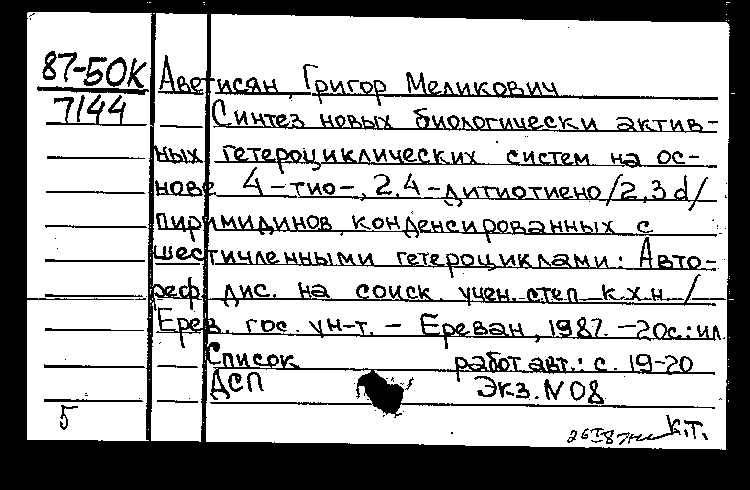 87-50К Аветисян, Григор Меликович
7144 Синтез новых биологически актив-
ных гетероциклических систем на ос-
нове 4-тио-, 2,4-дитиотиено/2,3d/
пиримидинов, конденсированных с
шестичленными гетероциклами: Авто-
реф. дис. на соиск. учен. степ. к.х.н. /
Ерев. гос. ун-т. - Ереван, 1987. -20с.: ил
Список работ авт.: с. 19-20
ДСП Экз. N 08
5 К.Т.